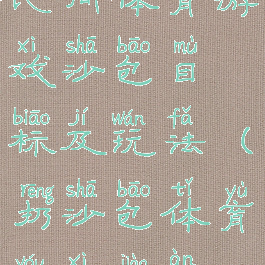 民间体育游
xì shā bāo mù
戏沙包目
biāo jí wán fǎ
标及玩法（
rēng shā bāo tǐ yù
扔沙包体育
yóu xì jiào àn